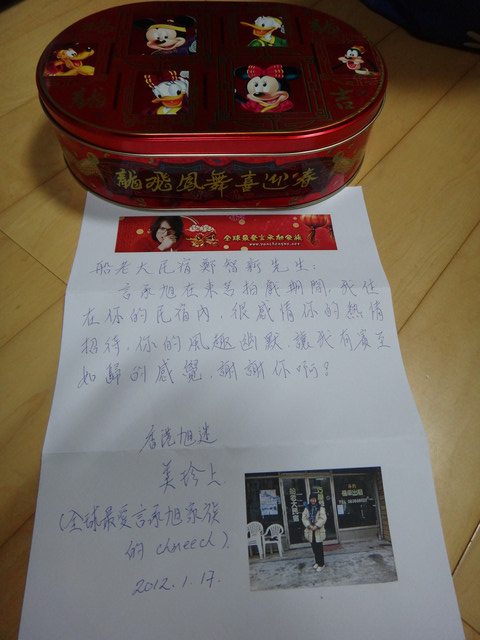 吉
龍飛鳳舞喜迎春
全球最愛言承旭家族
船老大民宿鄭智新先生:
言承旭在東莒拍戲期間,我住
在你的民宿內,很感情你的熱情
招待,你的風趣幽默,讓我有賓至
如歸的感覺,謝謝你啊!
香港旭迷
美珍上
(全球最愛言承旭家族
的 chmeech)
2012.1.17.